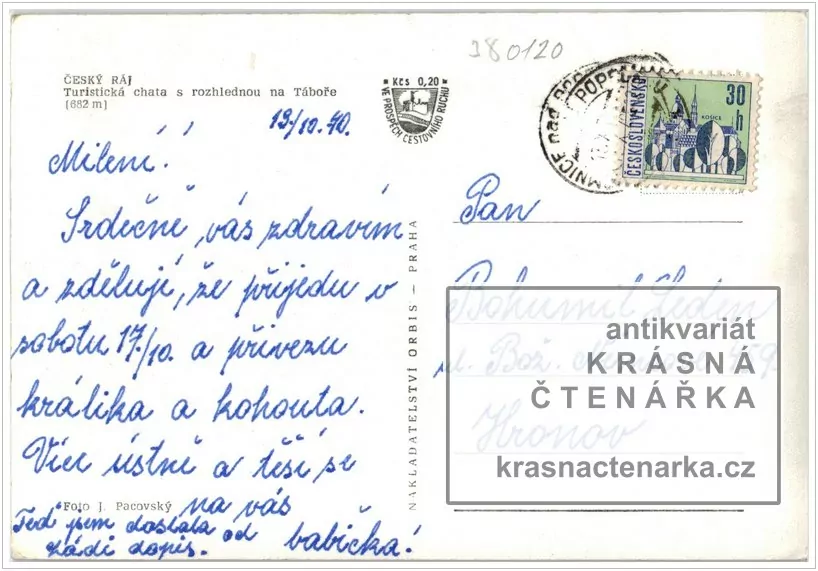 380120
ČESKÝ RÁJ
Turistická chata s rozhlednou na Táboře
(682 m)
Kčs 0,20
VE PROSPĚCH CESTOVNÍHO RUCHU
POPEL
MNICE nad
ČESKOSLOVENSKO
30 h
KOŠICE
13/10.70.
Milení!
Srdečně vás zdravím
a zděluji, že přijedu v
sobotu 17./10. a přivezu
králíka a kohouta.
Více ústně a těší se
na vás
babička!
Teď jsem dostala od
Ládi dopis.
Foto J. Pacovský
NAKLADATELSTVÍ ORBIS – PRAHA
Pan
Bohumil
ul. Bož.
Hronov
antikvariát
KRÁSNÁ
ČTENÁŘKA
krasnactenarka.cz